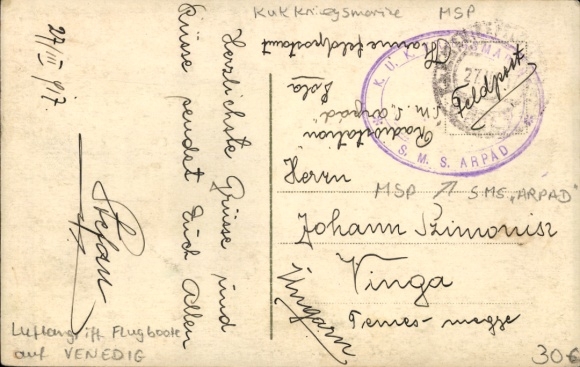 KuK Kriegsmarine MSP
27/III 917.
Herzlichste Grüsse und
Küsse sendet Euch Allen
Stefan
Marinefeldpostamt
Pola
S.M.S. "Arpád"
Radiostation
Feldpost.
K. U. K.
S. M. S. ARPÁD
27
Herrn
MSP S.M.S. "ARPAD"
Johann Szimonisz
Vinga
Temes-megye
Ungarn
Luftangriff Flugboote
auf VENEDIG
30€